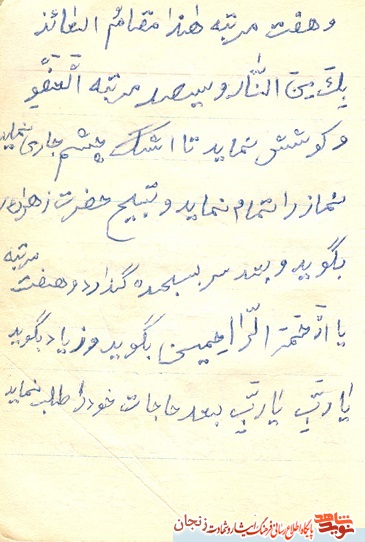 و هفت مرتبه هذا مقام العائذ
بِكَ مِنَ النّار و سیصد مرتبه اَلْعَفْو
و کوشش نماید تا اشک چشم جاری نماید
نماز را تمام نماید و تسبیح حضرت زهرا
بگوید و بعد سر بسجده گذارد و هفت مرتبه
یا اَرْحَمَ الرّاحِمین بگوید و زیاد بگوید
یا رَبِّ یا رَبِّ بعد حاجات خود را طلب نماید
نوید شاهد
پایگاه اطلاع رسانی فرهنگ ایثار و شهادت زنجان